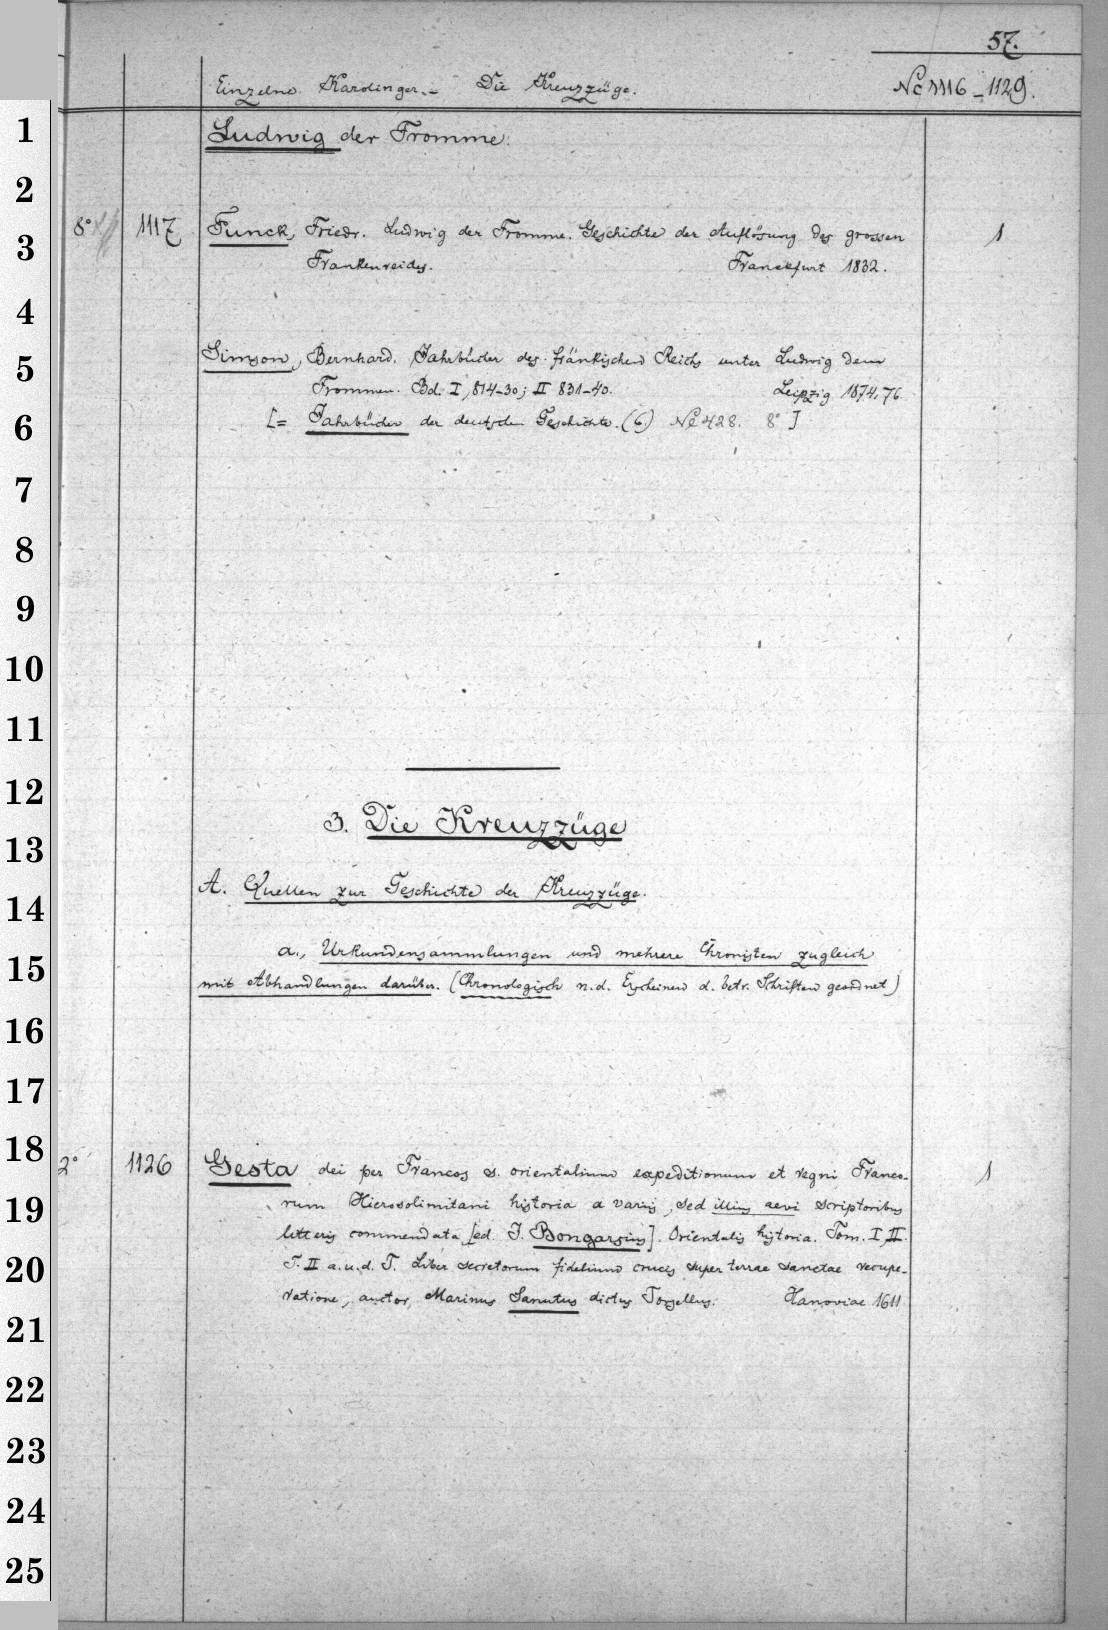 57.
Einzelne Karolinger. – Die Kreuzzüge. Nc 1116–1129.
1
Ludwig der Fromme.
2
8° 1117 Funck, Friedr. Ludwig der Fromme. Geschichte der Auflösung des grossen 1
3
Frankenreichs. Franckfurt 1832.
4
Simson, Bernhard. Jahrbücher des fränkischen Reichs unter Ludwig dem
5
Frommen. Bd. I, 814–30; II 831–40. Leipzig 1874,76
6
[= Jahrbücher der deutschen Geschichte. (6.) Nc 428. 8° ]
7
8
9
10
11
12
3. Die Kreuzzüge
13
A. Quellen zur Geschichte der Kreuzzüge.
14
a., Urkundensammlungen und mehrere Chronisten zugleich
15
mit Abhandlungen darüber. (Chronologisch n. d. Erscheinen d. betr. Schriften geordnet)
16
17
18
2° 1126 Gesta dei per Francos s. orientalium expeditionum et regni Franco- 1
19
rum Hierosolimitani historia a variis, sed illius aevi scriptoribus
litteris commendata [ed. J. Bongarsius]. Orientalis historia. Tom. I, II.
20
T. II a. u. d. T. Liber secretorum fidelium crucis super terrae sanctae recupe-
ratione, auctor, Marinus Sanutus dictus Torsellus. Hanoviae 1611
21
22
23
24
25